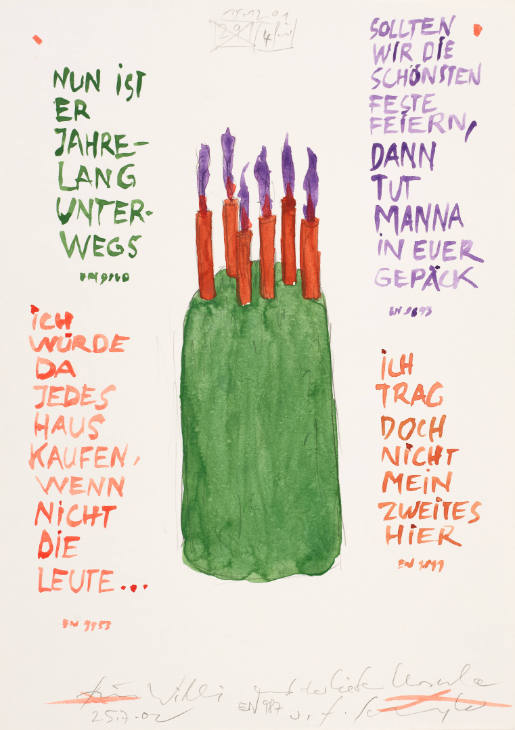 15.12.01
29 4
NUN iST
ER
JAHRE-
LANG
UNTER-
WEGS
SOLLTEN
WIR DIE
SCHÖNSTEN
FESTE
FEIERN,
DANN
TUT
MANNA
iN EUER
GEPÄCK
iCH
WÜRDE
DA
JEDES
HAUS
KAUFEN,
WENN
NICHT
DIE
LEUTE...
iCH
TRAG
DOCH
NiCHT
MEiN
ZWEiTES
HiER
für Willi und der lieben Ursula
25.7.02 EN 987 v. f.